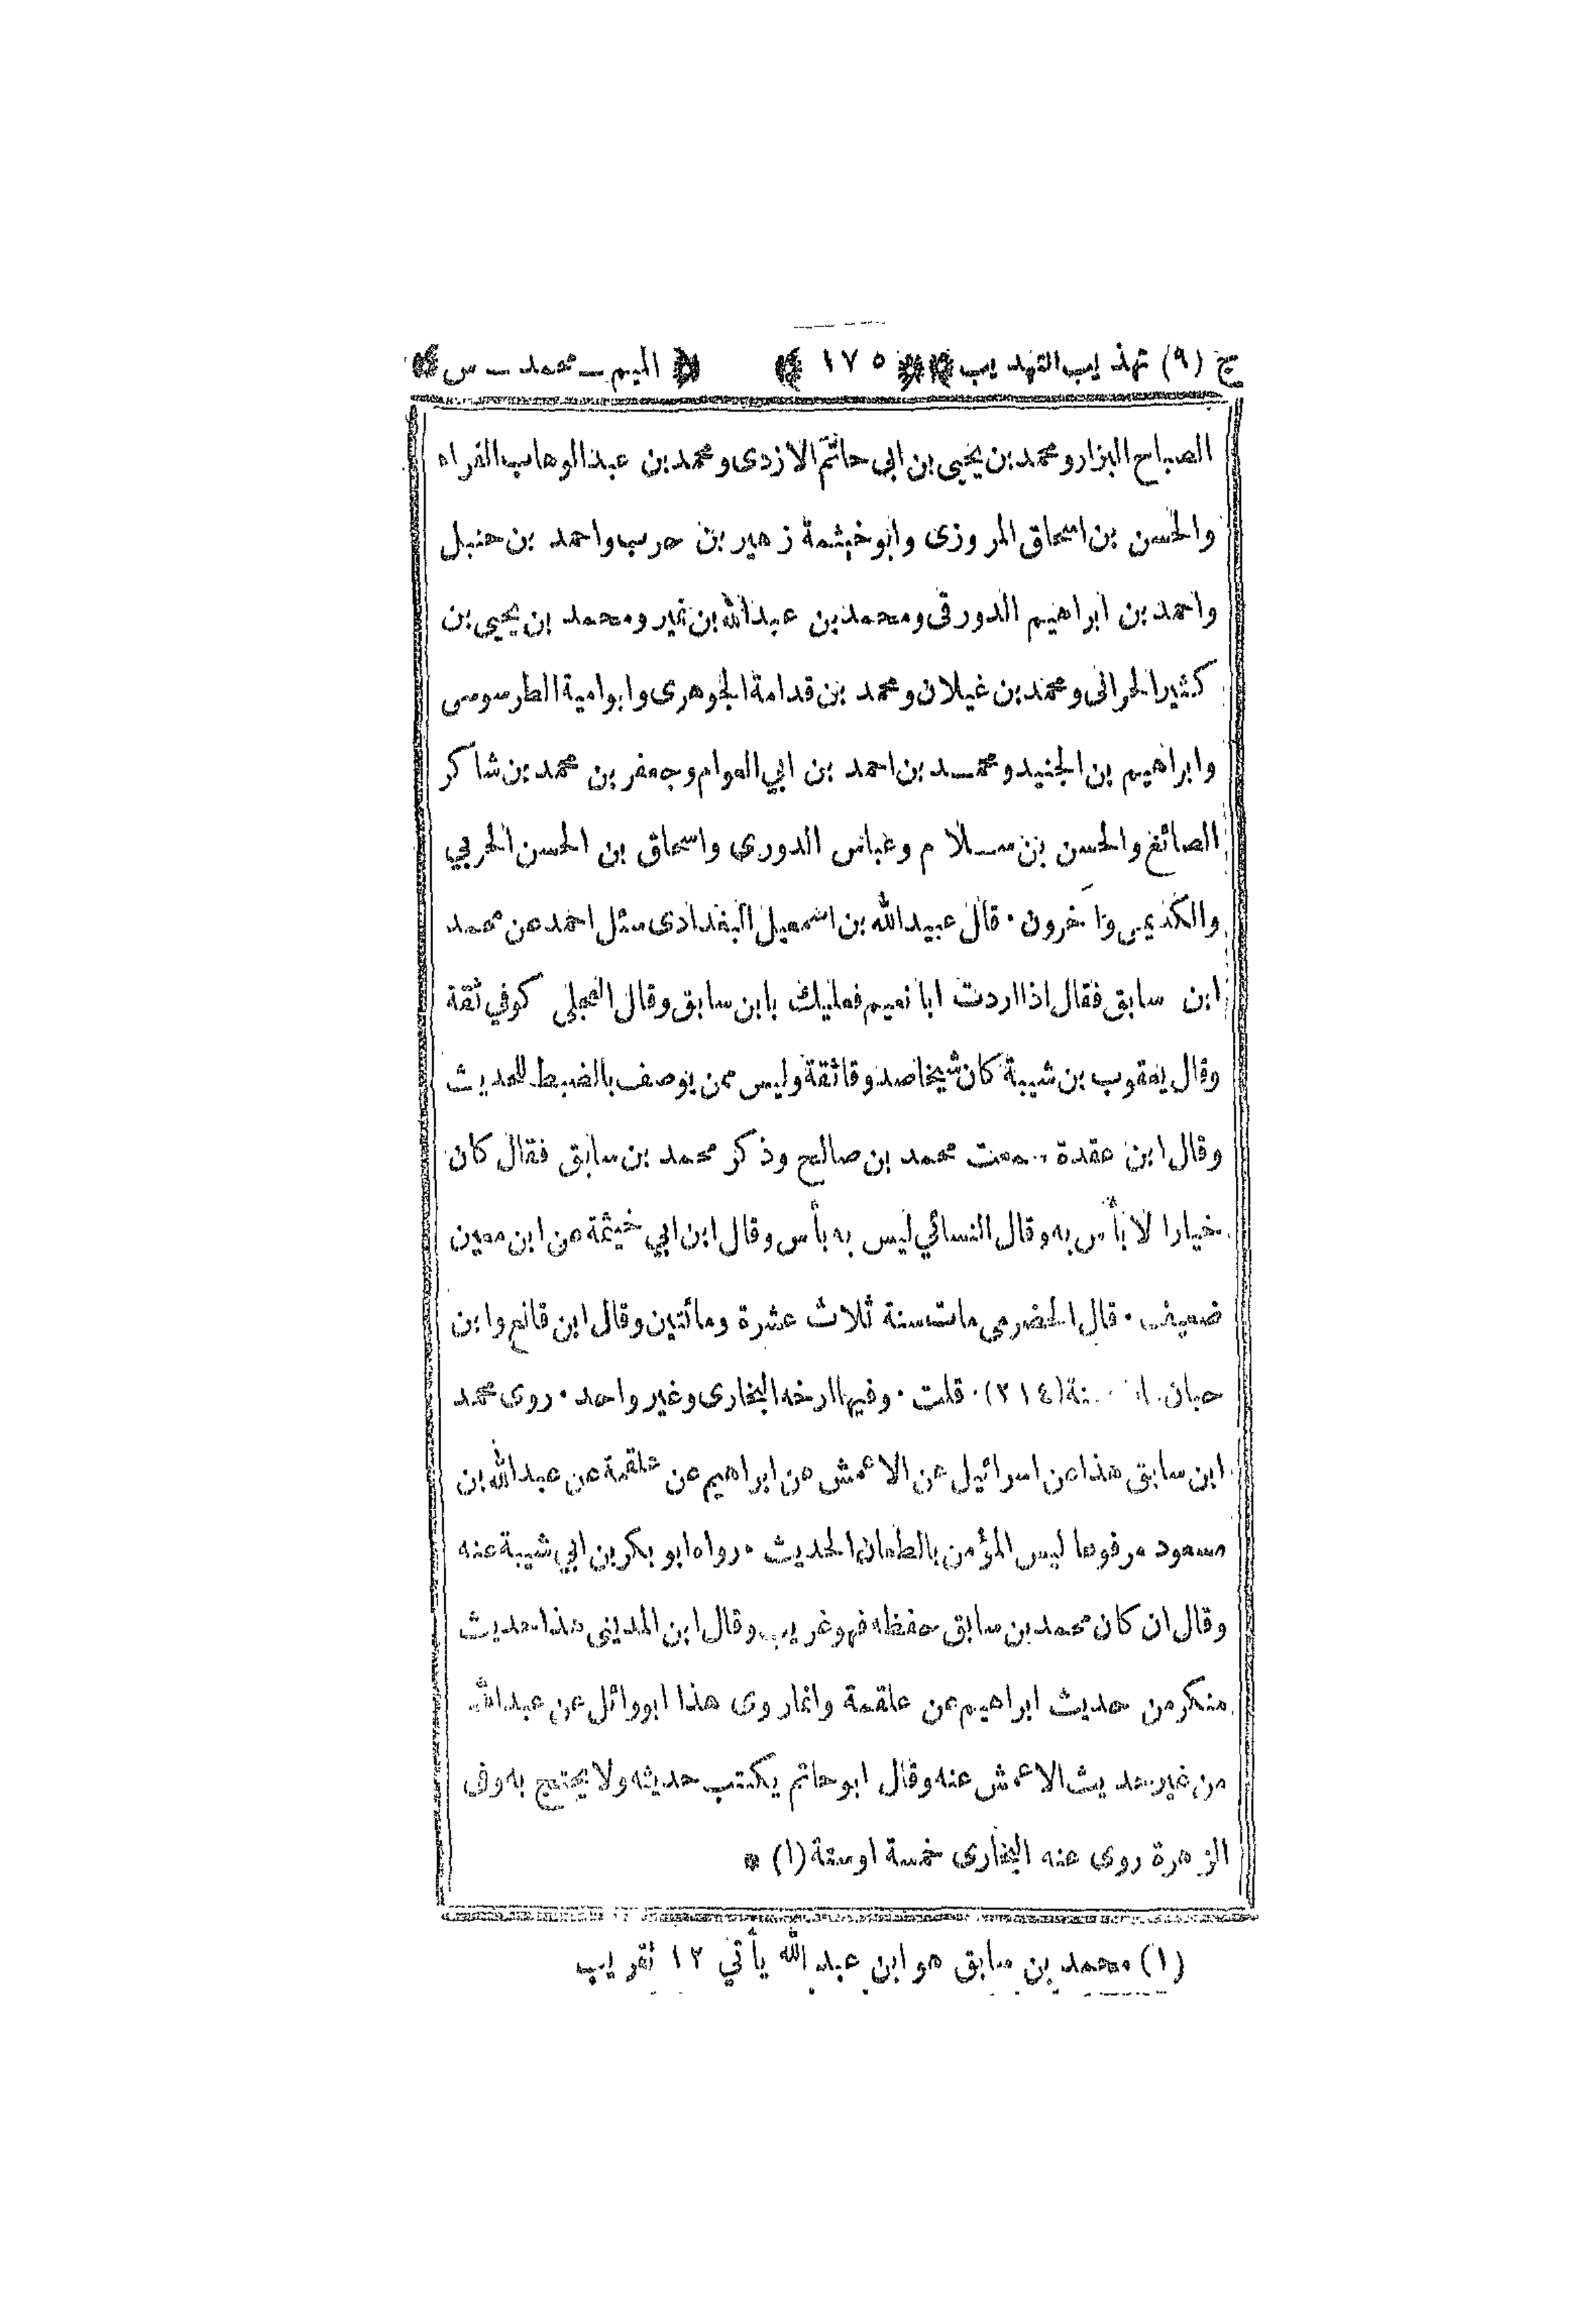 ج (٩) تهذيب التهذيب ١٧٥ الميم ــ محمد ــ س
الصباح البزار ومحمد بن يحيى بن ابي حاتم الازدى ومحمد بن عبد الوهاب الفراء
والحسن بن اسحاق المروزى وابو خيثمة زهير بن حرب واحمد بن حنبل
واحمد بن ابراهيم الدورقى ومحمد بن عبد الله بن نمير ومحمد بن يحيى بن
كثير الحرانى ومحمد بن غيلان ومحمد بن قدامة الجوهرى وابو امية الطرسوسى
وابراهيم بن الجنيد ومحمد بن احمد بن ابي العوام وجعفر بن محمد بن شاكر
الصائغ والحسن بن سلام وعباس الدورى واسحاق بن الحسن الحربي
والكديمى وآخرون ٠ قال عبيد الله بن اسمعيل البغدادى سئل احمد عن محمد
ابن سابق فقال اذا اردت ابا نعيم فعليك بابن سابق وقال العجلى كوفي ثقة
وقال يعقوب بن شيبة كان شيخا صدوقا ثقة وليس ممن يوصف بالضبط للحديث
وقال ابن عقدة سمعت محمد بن صالح وذكر محمد بن سابق فقال كان
خيارا لا بأس به وقال النسائي ليس به بأس وقال ابن ابي خيثمة عن ابن معين
ضعيف ٠ قال الحضرمي مات سنة ثلاث عشرة ومائتين وقال ابن قانع وابن
حبان (٢١٤) ٠ قلت ٠ وفيها ارخه البخارى وغير واحد ٠ روى محمد
ابن سابق هذا عن اسرائيل عن الاعمش عن ابراهيم عن علقمة عن عبد الله بن
مسعود مرفوعا ليس المؤمن بالطعان الحديث ٠ رواه ابو بكر بن ابي شيبة عنه
وقال ان كان محمد بن سابق حفظه فهو غريب وقال ابن المدينى هذا حديث
منكر من حديث ابراهيم عن علقمة وانما روى هذا ابو وائل عن عبد الله
من غير حديث الاعمش عنه وقال ابو حاتم يكتب حديثه ولا يحتج به وفى
الزهرة روى عنه البخارى خمسة او ستة (١) *
(١) محمد بن سابق هو ابن عبد الله يأتي ١٢ تقريب